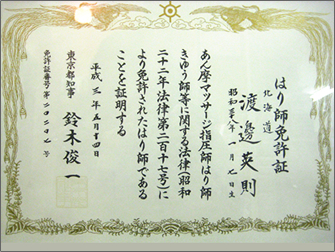 はり師免許証
北海道
渡邊英則
昭和三十八年一月七日生
あん摩マッサージ指圧師はり師
きゆう師等に関する法律(昭和
二十二年法律第二百十七号)に
より免許されたはり師である
ことを証明する
平成三年五月十四日
東京都知事 鈴木俊一